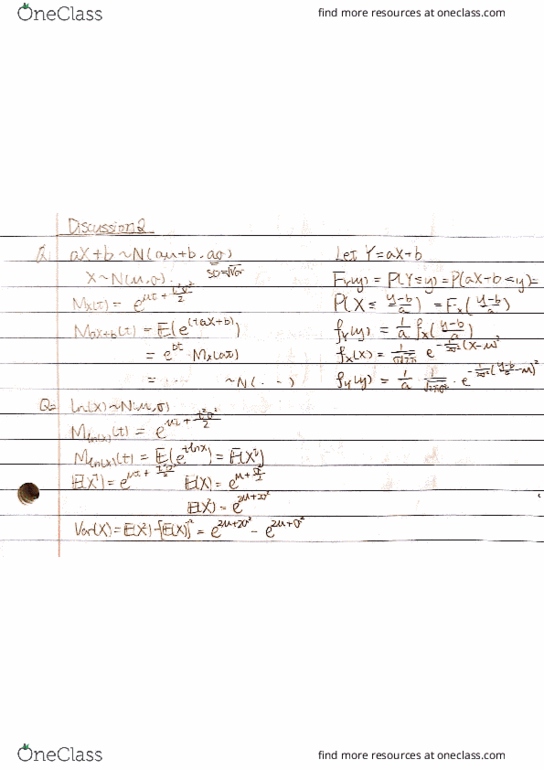 OneClass
find more resources at oneclass.com
Discussion 2
aX+b ~ N(aμ+b, aσ)
SD=√Var
X ~ N(μ,σ).
M_X(t) = e^{μt + \frac{t²σ²}{2}}
M_{aX+b}(t) = E(e^{t(aX+b)})
= e^{bt} · M_X(at)
= ... ~N(· ·)
Let Y = aX+b
F_Y(y) = P(Y≤y) = P(aX+b<y) =
P(X ≤ \frac{y-b}{a}) = F_X(\frac{y-b}{a})
f_Y(y) = \frac{1}{a} f_X(\frac{y-b}{a})
f_Y(y) = \frac{1}{a}
Q2 ln(x) ~ N(μ,σ)
M_{ln(x)}(t) =
M_{ln(x)}(t) = E(e^{t lnx}) = E(X^t)
E(X) = e^{μ+\frac{σ²}{2}}
E(X²) = e^{2μ+2σ²}
Var(X) = E(X²) - [E(X)]² = e^{2μ+2σ²} - e^{2μ+σ²}
OneClass
find more resources at oneclass.com